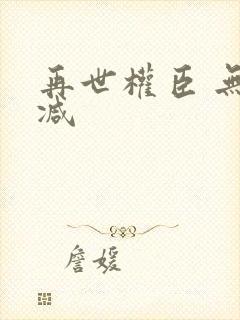 再世權臣 無
減
詹媛